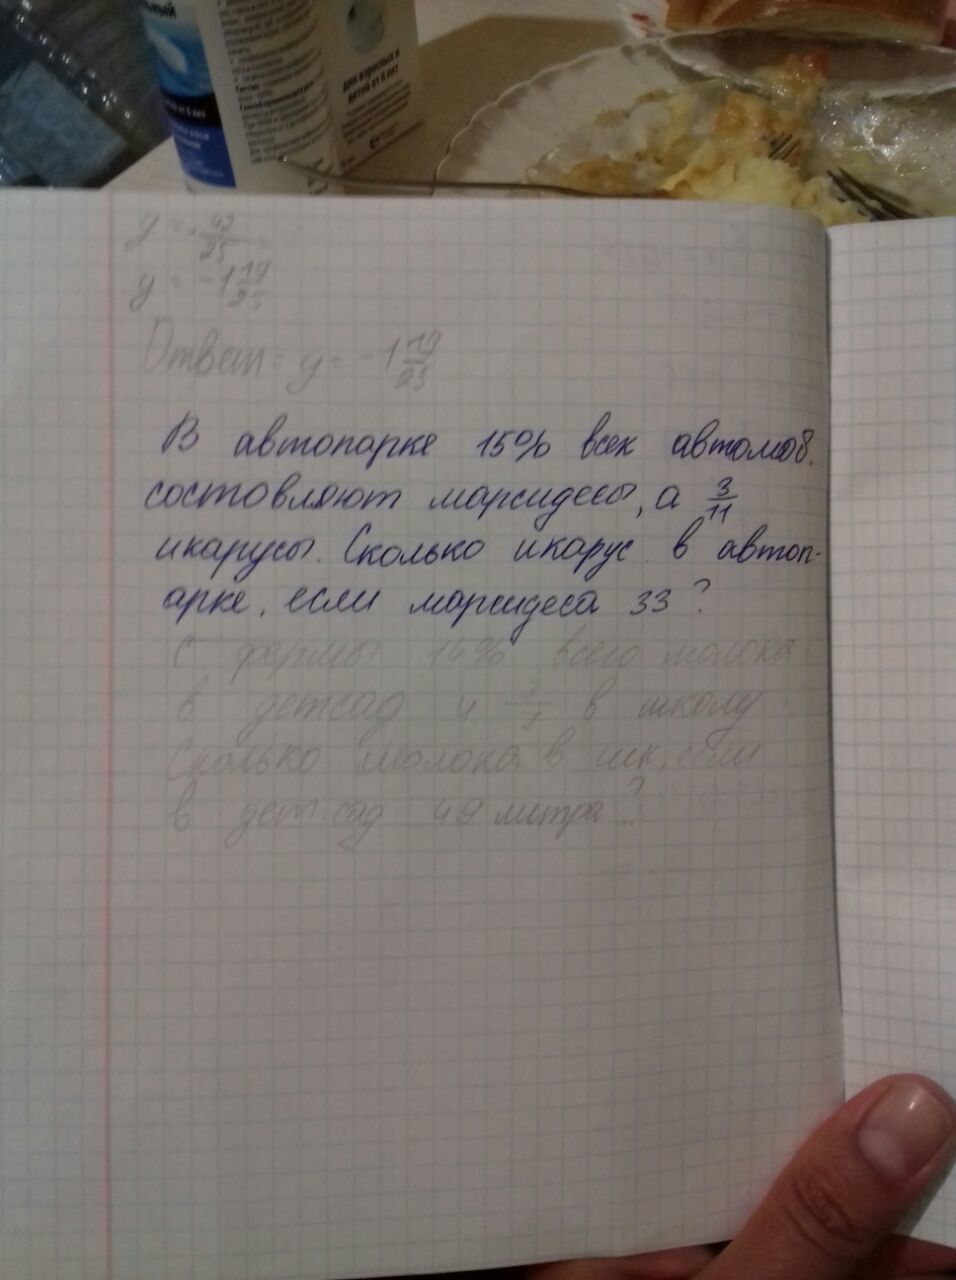 для взрослых и
детей от 6 лет
y = - 42/25
y = -1 17/25
Ответ: y = -1 17/25
В автопарке 15% всех автомоб.
состовляют марсидесы, а 3/11
икарусы. Сколько икарус в автоп-
арке, если марсидеса 33?
С фермы 14% всего молока
в детсад и в школу
Сколько молока в шк, если
в дет сад 49 литра?